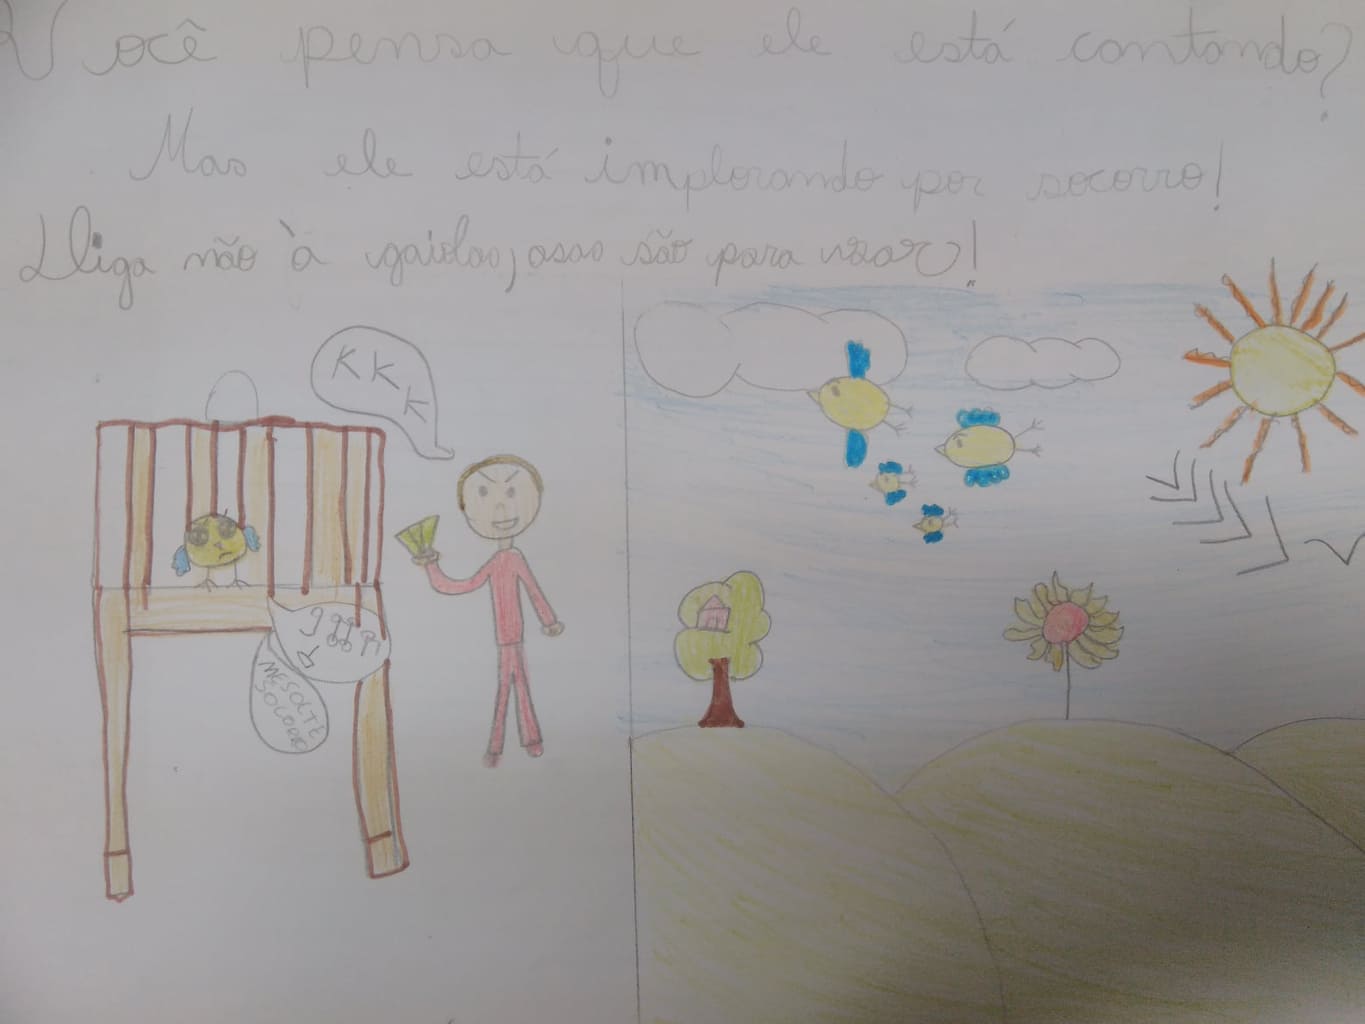 Você pensa que ele está cantando?
Mas ele está implorando por socorro!
Diga não à gaiolas, asas são para voar!
KKK
ME SOLTE
SOCORRO